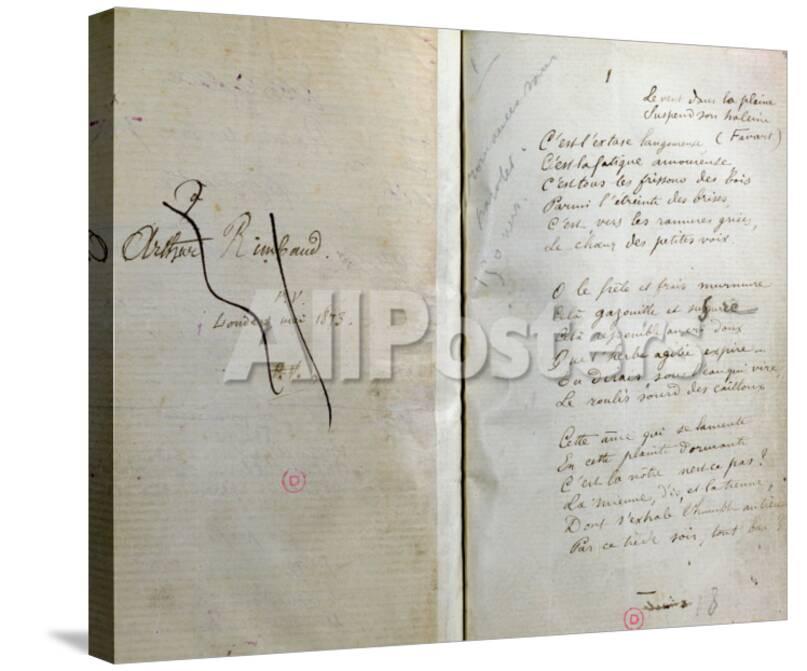 à
Arthur Rimbaud.
P.V.
Londres mai 1873.
P.V.
D
AllPosters
romances sans
paroles.
1
Le vent dans la plaine
Suspend son haleine
(Favart)
C'est l'extase langoureuse
C'est la fatigue amoureuse
C'est tous les frissons des bois
Parmi l'étreinte des brises,
C'est, vers les ramures grises,
Le chœur des petites voix.
O le frêle et frais murmure
Cela gazouille et susurre
Cela au doux
Que l'herbe agitée expire
sous l'eau qui vire,
Le roulis sourd des cailloux
Cette âme qui se lamente
En cette plainte dormante
C'est la nôtre n'est-ce pas?
La mienne, dis, et la tienne,
Dont s'exhale l'humble antienne
Par ce tiède soir, tout bas?
18
D